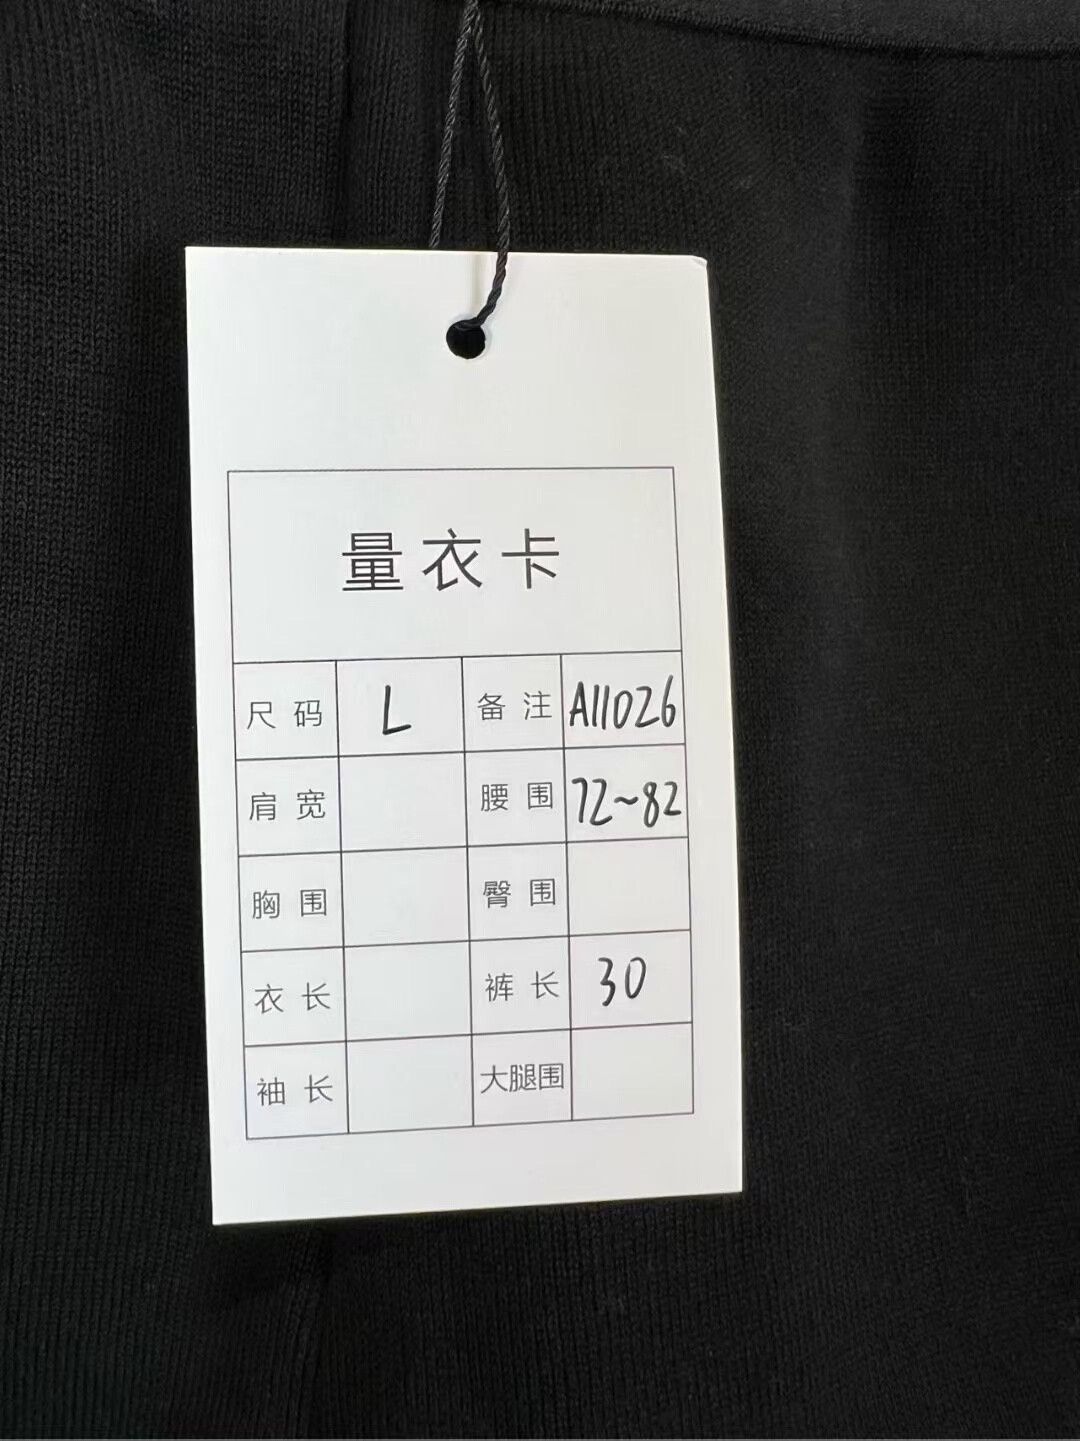 量衣卡
尺码 L 备注 A11026
肩宽 腰围 72~82
胸围 臀围
衣长 裤长 30
袖长 大腿围